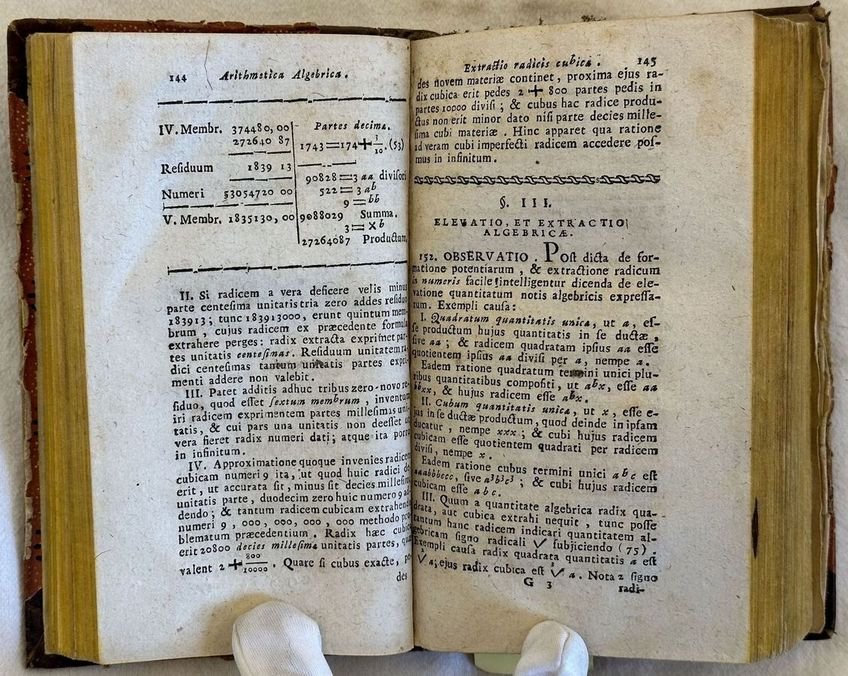 144 Arithmetica Algebrica.
IV. Membr. 374480,00
272640 87
Residuum 1839 13
Numeri 53054720 00
V. Membr. 1835130,00
Partes decimæ.
1743=174+1/10.(53)
90828=3 aa divisori
522=3 ab
9=bb
9088029 Summa.
3=×b
27264087 Productum.
II. Si radicem a vera deficere velis minus
parte centesima unitatis tria zero addes residuo
183913; tunc 183913000, erunt quintum mem-
brum, cujus radicem ex præcedente formula
extrahere perges: radix extracta exprimet par-
tes unitatis centesimas. Residuum unitatem ra-
dici centesimas tantum unitatis partes expri-
menti addere non valebit.
III. Patet additis adhuc tribus zero novo re-
siduo, quod esset sextum membrum, inventum
iri radicem exprimentem partes millesimas uni-
tatis, & cui pars una unitatis non deesset
vera fieret radix numeri dati; atque ita porro
in infinitum.
IV. Approximatione quoque invenies radicem
cubicam numeri 9 ita, ut quod huic radici de-
erit, ut accurata sit, minus sit decies millesima
unitatis parte, duodecim zero huic numero 9 ad-
dendo; & tantum radicem cubicam extrahendo
numeri 9, 000, 000, 000, 000 methodo pro-
blematum præcedentium. Radix hæc cubica
erit 20800 decies millesima unitatis partes, quæ
valent 2+800/10000. Quare si cubus exacte, pe-
des
Extractio radicis cubicæ. 145
des novem materiæ continet, proxima ejus ra-
dix cubica erit pedes 2+800 partes pedis in
partes 10000 divisi; & cubus hac radice produ-
ctus non erit minor dato nisi parte decies mille-
sima cubi materiæ. Hinc apparet qua ratione
ad veram cubi imperfecti radicem accedere pos-
mus in infinitum.
§. III.
ELEVATIO, ET EXTRACTIO
ALGEBRICÆ.
152. OBSERVATIO. Post dicta de for-
matione potentiarum, & extractione radicum
in numeris facile intelligentur dicenda de ele-
vatione quantitatum notis algebricis expressa-
rum. Exempli causa:
I. Quadratum quantitatis unica, ut a, es-
se productum hujus quantitatis in se ductæ,
sive aa; & radicem quadratam ipsius aa esse
quotientem ipsius aa divisi per a, nempe a.
Eadem ratione quadratum termini unici plu-
ribus quantitatibus compositi, ut abx, esse aa
bbxx, & hujus radicem esse abx.
II. Cubum quantitatis unica, ut x, esse e-
jus in se ductæ productum, quod deinde in ipsam
ducatur, nempe xxx; & cubi hujus radicem
cubicam esse quotientem quadrati per radicem
divisi, nempe x.
Eadem ratione cubus termini unici abc est
aaabbbccc, sive a³b³c³; & cubi hujus radicem
cubicam esse abc.
III. Quum a quantitate algebrica radix qua-
drata, aut cubica extrahi nequit, tunc posse
tantum hanc radicem indicari quantitatem al-
gebricam signo radicali √ subjiciendo (75).
Exempli causa radix quadrata quantitatis a est
√a; ejus radix cubica est ∛a. Nota 2 signo
G 3 radi-